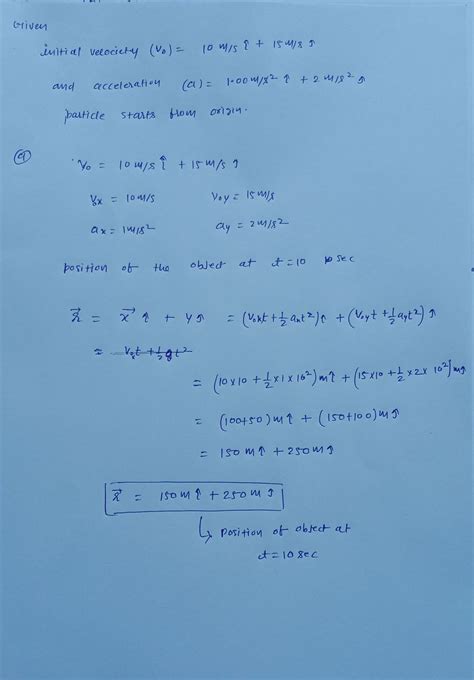 Given
initial velociety (V₀) = 10 m/s î + 15 m/s ĵ
and acceleration (a) = 1.00 m/s² î + 2 m/s² ĵ
particle starts from origin.
(a)
V₀ = 10 m/s î + 15 m/s ĵ
V₀x = 10 m/s V₀y = 15 m/s
ax = 1 m/s² ay = 2 m/s²
position of the object at t = 10 sec
r⃗ = x⃗ î + y ĵ = (V₀xt + ½ axt²) î + (V₀yt + ½ ayt²) ĵ
=
= (10×10 + ½ × 1 × 10²) m î + (15×10 + ½ × 2 × 10²) m ĵ
= (100+50) m î + (150+100) m ĵ
= 150 m î + 250 m ĵ
r⃗ = 150 m î + 250 m ĵ
↳ position of object at
t = 10 sec